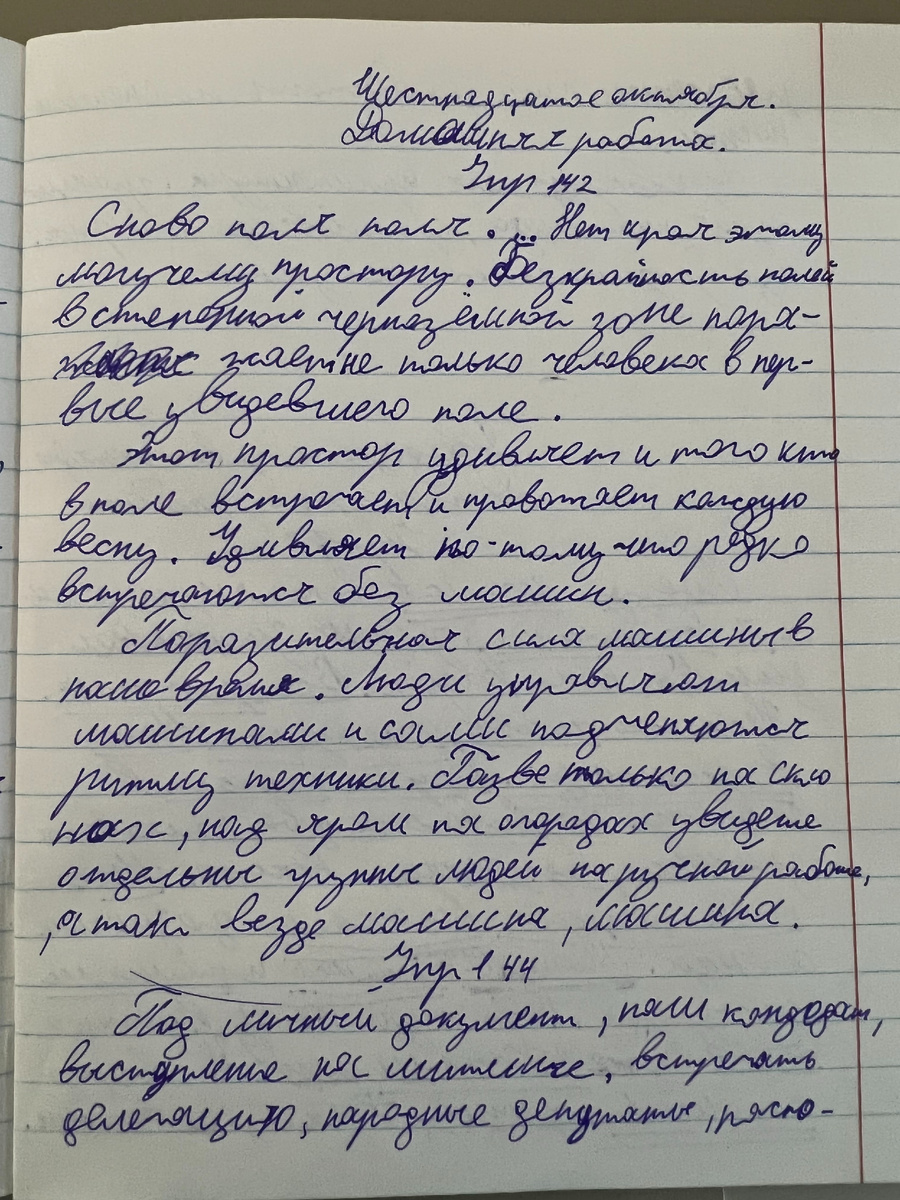 Шестнадцатое октября.
Домашняя работа.
Упр 142
Снова поля поля . .. Нет края этому
могучему простору. Безкрайность полей
в степенной чернозёмной зоне пора-
жает не только человека в пер-
вые увидевшего поле.
Этот простор удивляет и того кто
в поле встречает и провожает каждую
весну. Удивляет по-тому что редко
встречаются без машин.
Поразительная сила машины в
наше время. Люди управляют
машинами и сами подченяются
ритму техники. Разве только на скло
нах, над яром на огорадах увидеше
отдельные группы людей на ручной работе,
, а так везде машина, машина.
Упр 144
Под личный документ, наш кандедат,
выступление на митинге, встречать
делегацию, народные депутаты, распо-